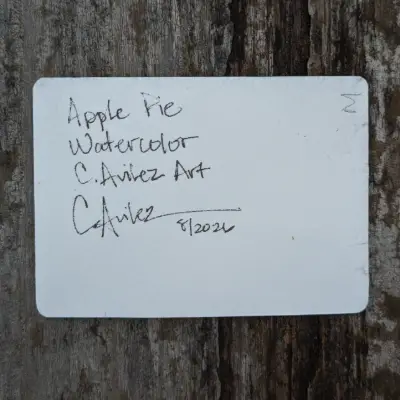 Apple Pie
Watercolor
C. Avilez Art
C. Avilez
8/2026
M